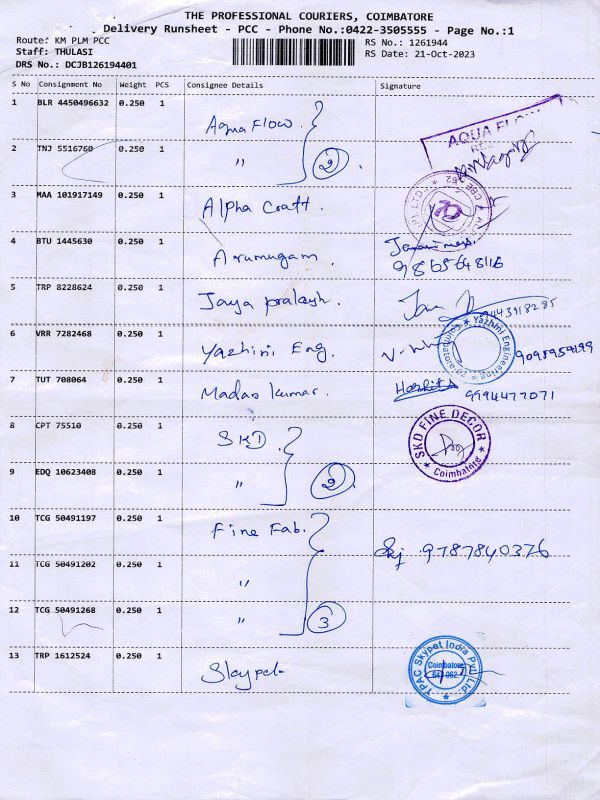 THE PROFESSIONAL COURIERS, COIMBATORE
Delivery Runsheet - PCC - Phone No.:0422-3505555 - Page No.:1
Route: KM PLM PCC
Staff: THULASI
DRS No.: DCJB126194401
RS No.: 1261944
RS Date: 21-Oct-2023
S No Consignment No Weight PCS Consignee Details Signature
1 BLR 4450496632 0.250 1 Aqua Flow. AQUA FLOW
2 TNJ 5516760 0.250 1 " 2
3 MAA 101917149 0.250 1 Alpha Craft.
4 BTU 1445630 0.250 1 Arumugam 9865648116
5 TRP 8228624 0.250 1 Jaya prakash. 9443918285
6 VRR 7282468 0.250 1 Yazhini Eng. ★ Yazhini Engineering ★ Coimbatore
7 TUT 708064 0.250 1 Madan kumar. 9994477071
8 CPT 75510 0.250 1 SKD. SKD FINE DECOR ★ Coimbatore ★
9 EDQ 10623408 0.250 1 " 2
10 TCG 50491197 0.250 1 Fine Fab. 9787840376
11 TCG 50491202 0.250 1 "
12 TCG 50491268 0.250 1 " 3
13 TRP 1612524 0.250 1 Skypet TPAC Skypet India Pvt. Ltd. Coimbatore 641 062.